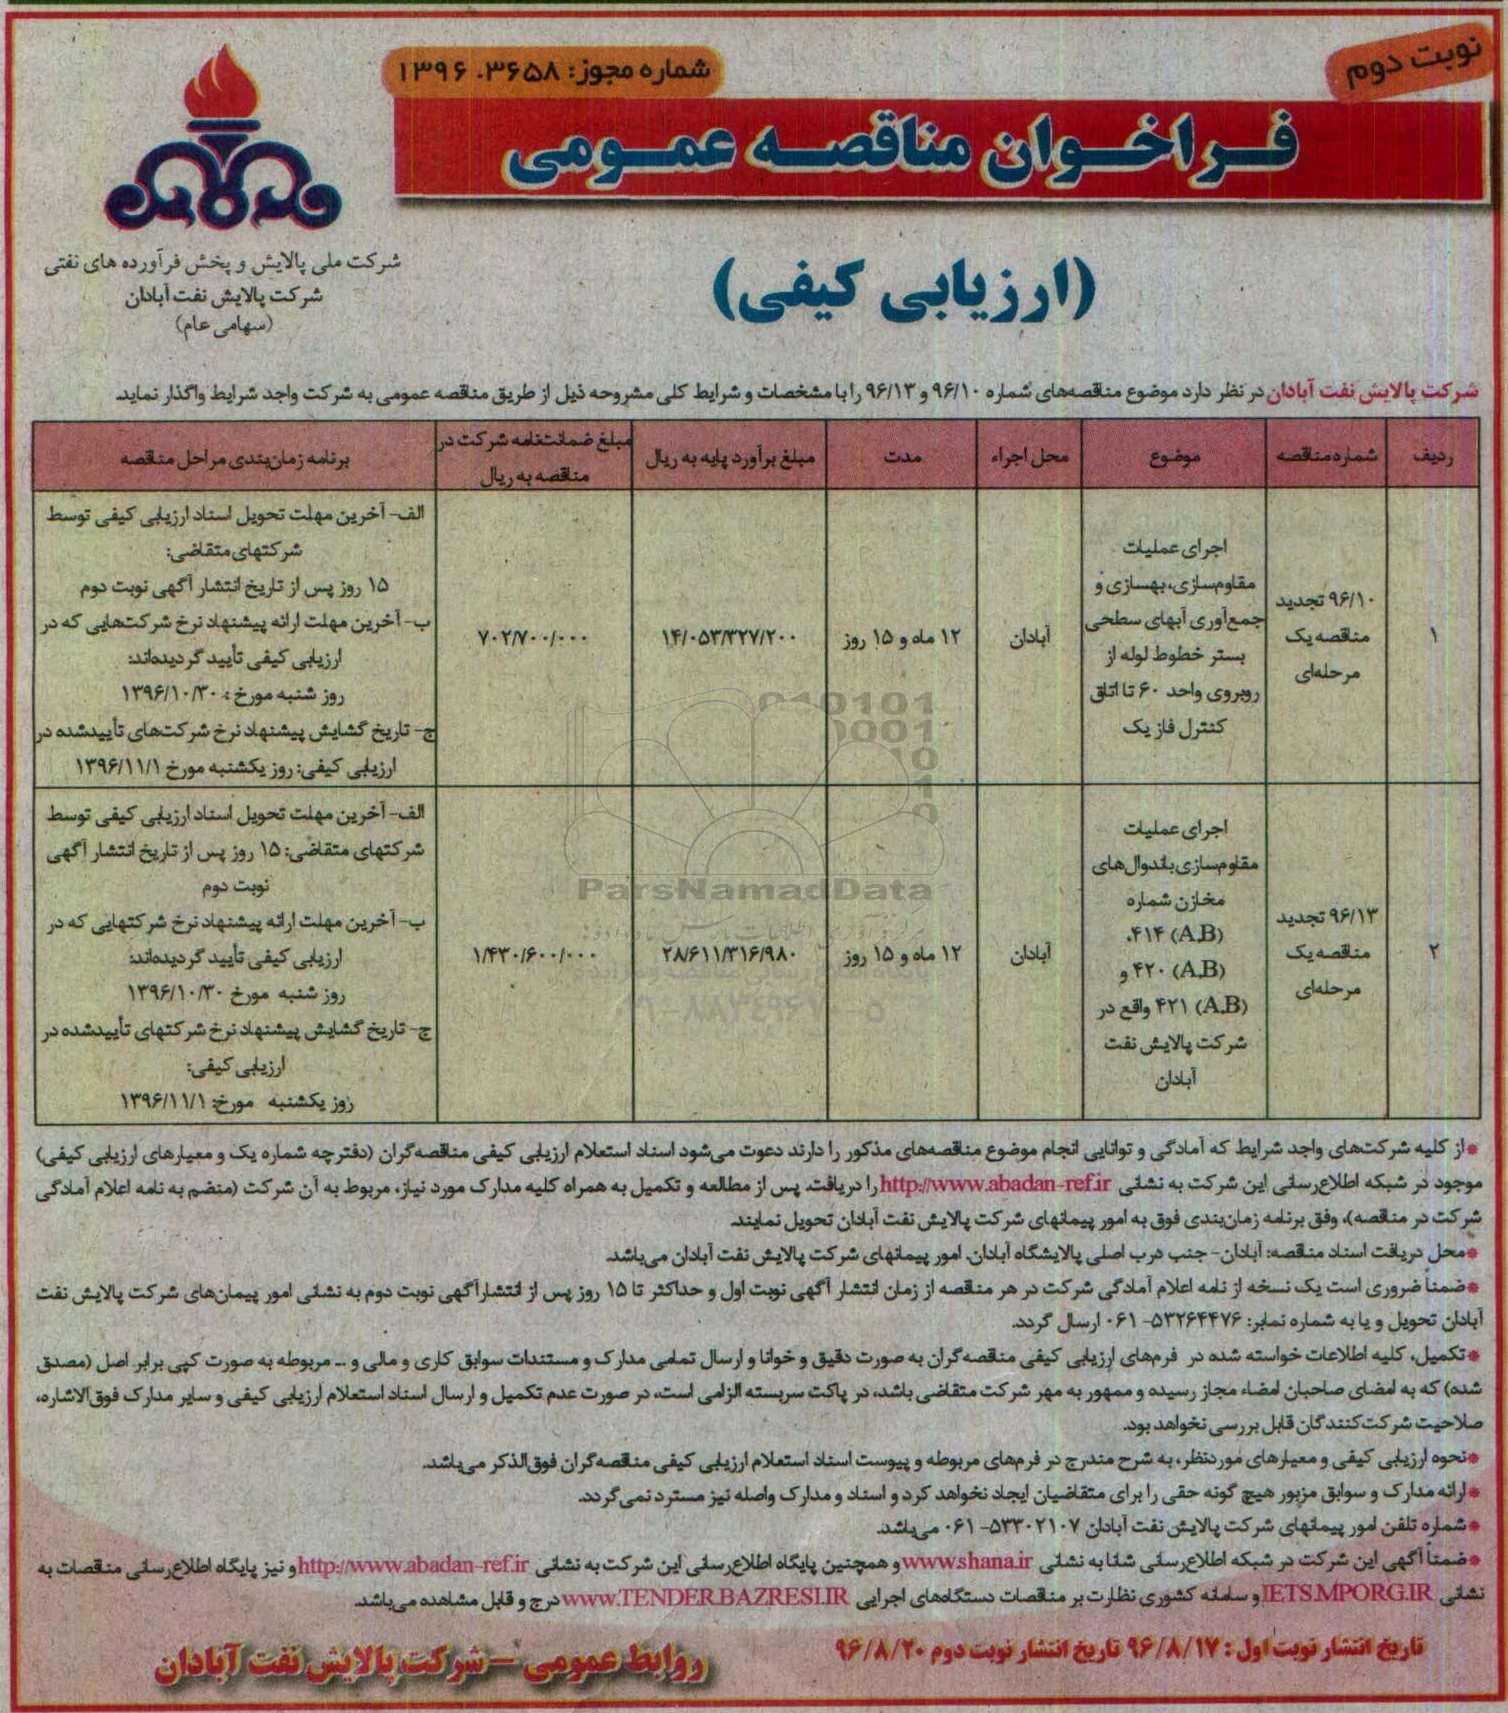 نوبت دوم
شماره مجوز: ۳۶۵۸. ۱۳۹۶
فراخوان مناقصه عمومی
(ارزیابی کیفی)
شرکت ملی پالایش و پخش فرآورده های نفتی
شرکت پالایش نفت آبادان
(سهامی عام)
شرکت پالایش نفت آبادان در نظر دارد موضوع مناقصه‌های شماره ۹۶/۱۰ و ۹۶/۱۳ را با مشخصات و شرایط کلی مشروحه ذیل از طریق مناقصه عمومی به شرکت واجد شرایط واگذار نماید.
ردیف
شماره مناقصه
موضوع
محل اجراء
مدت
مبلغ برآورد پایه به ریال
مبلغ ضمانتنامه شرکت در
مناقصه به ریال
برنامه زمان‌بندی مراحل مناقصه
۱
۹۶/۱۰ تجدید
مناقصه یک
مرحله‌ای
اجرای عملیات
مقاوم‌سازی، بهسازی و
جمع‌آوری آبهای سطحی
بستر خطوط لوله از
روبروی واحد ۶۰ تا اتاق
کنترل فاز یک
آبادان
۱۲ ماه و ۱۵ روز
۱۴/۰۵۳/۳۲۷/۲۰۰
۷۰۲/۷۰۰/۰۰۰
الف- آخرین مهلت تحویل اسناد ارزیابی کیفی توسط
شرکتهای متقاضی:
۱۵ روز پس از تاریخ انتشار آگهی نوبت دوم
ب- آخرین مهلت ارائه پیشنهاد نرخ شرکت‌هایی که در
ارزیابی کیفی تأیید گردیده‌اند:
روز شنبه مورخ : ۱۳۹۶/۱۰/۳۰
ج- تاریخ گشایش پیشنهاد نرخ شرکت‌های تأییدشده در
ارزیابی کیفی: روز یکشنبه مورخ ۱۳۹۶/۱۱/۱
۲
۹۶/۱۳ تجدید
مناقصه یک
مرحله‌ای
اجرای عملیات
مقاوم‌سازی باندوال‌های
مخازن شماره
(A,B) ۴۱۴،
(A,B) ۴۲۰ و
(A,B) ۴۲۱ واقع در
شرکت پالایش نفت
آبادان
آبادان
۱۲ ماه و ۱۵ روز
۲۸/۶۱۱/۳۱۶/۹۸۰
۱/۴۳۰/۶۰۰/۰۰۰
الف- آخرین مهلت تحویل اسناد ارزیابی کیفی توسط
شرکتهای متقاضی: ۱۵ روز پس از تاریخ انتشار آگهی
نوبت دوم
ب- آخرین مهلت ارائه پیشنهاد نرخ شرکتهایی که در
ارزیابی کیفی تأیید گردیده‌اند:
روز شنبه مورخ ۱۳۹۶/۱۰/۳۰
ج- تاریخ گشایش پیشنهاد نرخ شرکتهای تأییدشده در
ارزیابی کیفی:
روز یکشنبه مورخ: ۱۳۹۶/۱۱/۱
ParsNamadData
۰۲۱-۸۸۳۴۹۶۷۰-۵
* از کلیه شرکت‌های واجد شرایط که آمادگی و توانایی انجام موضوع مناقصه‌های مذکور را دارند دعوت می‌شود اسناد استعلام ارزیابی کیفی مناقصه‌گران (دفترچه شماره یک و معیارهای ارزیابی کیفی)
موجود در شبکه اطلاع‌رسانی این شرکت به نشانی http://www.abadan-ref.ir را دریافت، پس از مطالعه و تکمیل به همراه کلیه مدارک مورد نیاز، مربوط به آن شرکت (منضم به نامه اعلام آمادگی
شرکت در مناقصه)، وفق برنامه زمان‌بندی فوق به امور پیمانهای شرکت پالایش نفت آبادان تحویل نمایند.
* محل دریافت اسناد مناقصه: آبادان- جنب درب اصلی پالایشگاه آبادان، امور پیمانهای شرکت پالایش نفت آبادان می‌باشد.
* ضمناً ضروری است یک نسخه از نامه اعلام آمادگی شرکت در هر مناقصه از زمان انتشار آگهی نوبت اول و حداکثر تا ۱۵ روز پس از انتشار آگهی نوبت دوم به نشانی امور پیمان‌های شرکت پالایش نفت
آبادان تحویل و یا به شماره نمابر: ۵۳۲۶۴۴۷۶- ۰۶۱ ارسال گردد.
* تکمیل، کلیه اطلاعات خواسته شده در فرم‌های ارزیابی کیفی مناقصه‌گران به صورت دقیق و خوانا و ارسال تمامی مدارک و مستندات سوابق کاری و مالی و ... مربوطه به صورت کپی برابر اصل (مصدق
شده) که به امضای صاحبان امضاء مجاز رسیده و ممهور به مهر شرکت متقاضی باشد، در پاکت سربسته الزامی است، در صورت عدم تکمیل و ارسال اسناد استعلام ارزیابی کیفی و سایر مدارک فوق‌الاشاره،
صلاحیت شرکت‌کنندگان قابل بررسی نخواهد بود.
* نحوه ارزیابی کیفی و معیارهای موردنظر، به شرح مندرج در فرم‌های مربوطه و پیوست اسناد استعلام ارزیابی کیفی مناقصه‌گران فوق‌الذکر می‌باشد.
* ارائه مدارک و سوابق مزبور هیچ گونه حقی را برای متقاضیان ایجاد نخواهد کرد و اسناد و مدارک واصله نیز مسترد نمی‌گردد.
* شماره تلفن امور پیمانهای شرکت پالایش نفت آبادان ۵۳۳۰۲۱۰۷- ۰۶۱ می‌باشد.
* ضمناً آگهی این شرکت در شبکه اطلاع‌رسانی شانا به نشانی www.shana.ir و همچنین پایگاه اطلاع‌رسانی این شرکت به نشانی http://www.abadan-ref.ir و نیز پایگاه اطلاع‌رسانی مناقصات به
نشانی IETS.MPORG.IR و سامانه کشوری نظارت بر مناقصات دستگاه‌های اجرایی www.TENDER.BAZRESI.IR درج و قابل مشاهده می‌باشد.
تاریخ انتشار نوبت اول : ۹۶/۸/۱۷ تاریخ انتشار نوبت دوم ۹۶/۸/۲۰
روابط عمومی – شرکت پالایش نفت آبادان